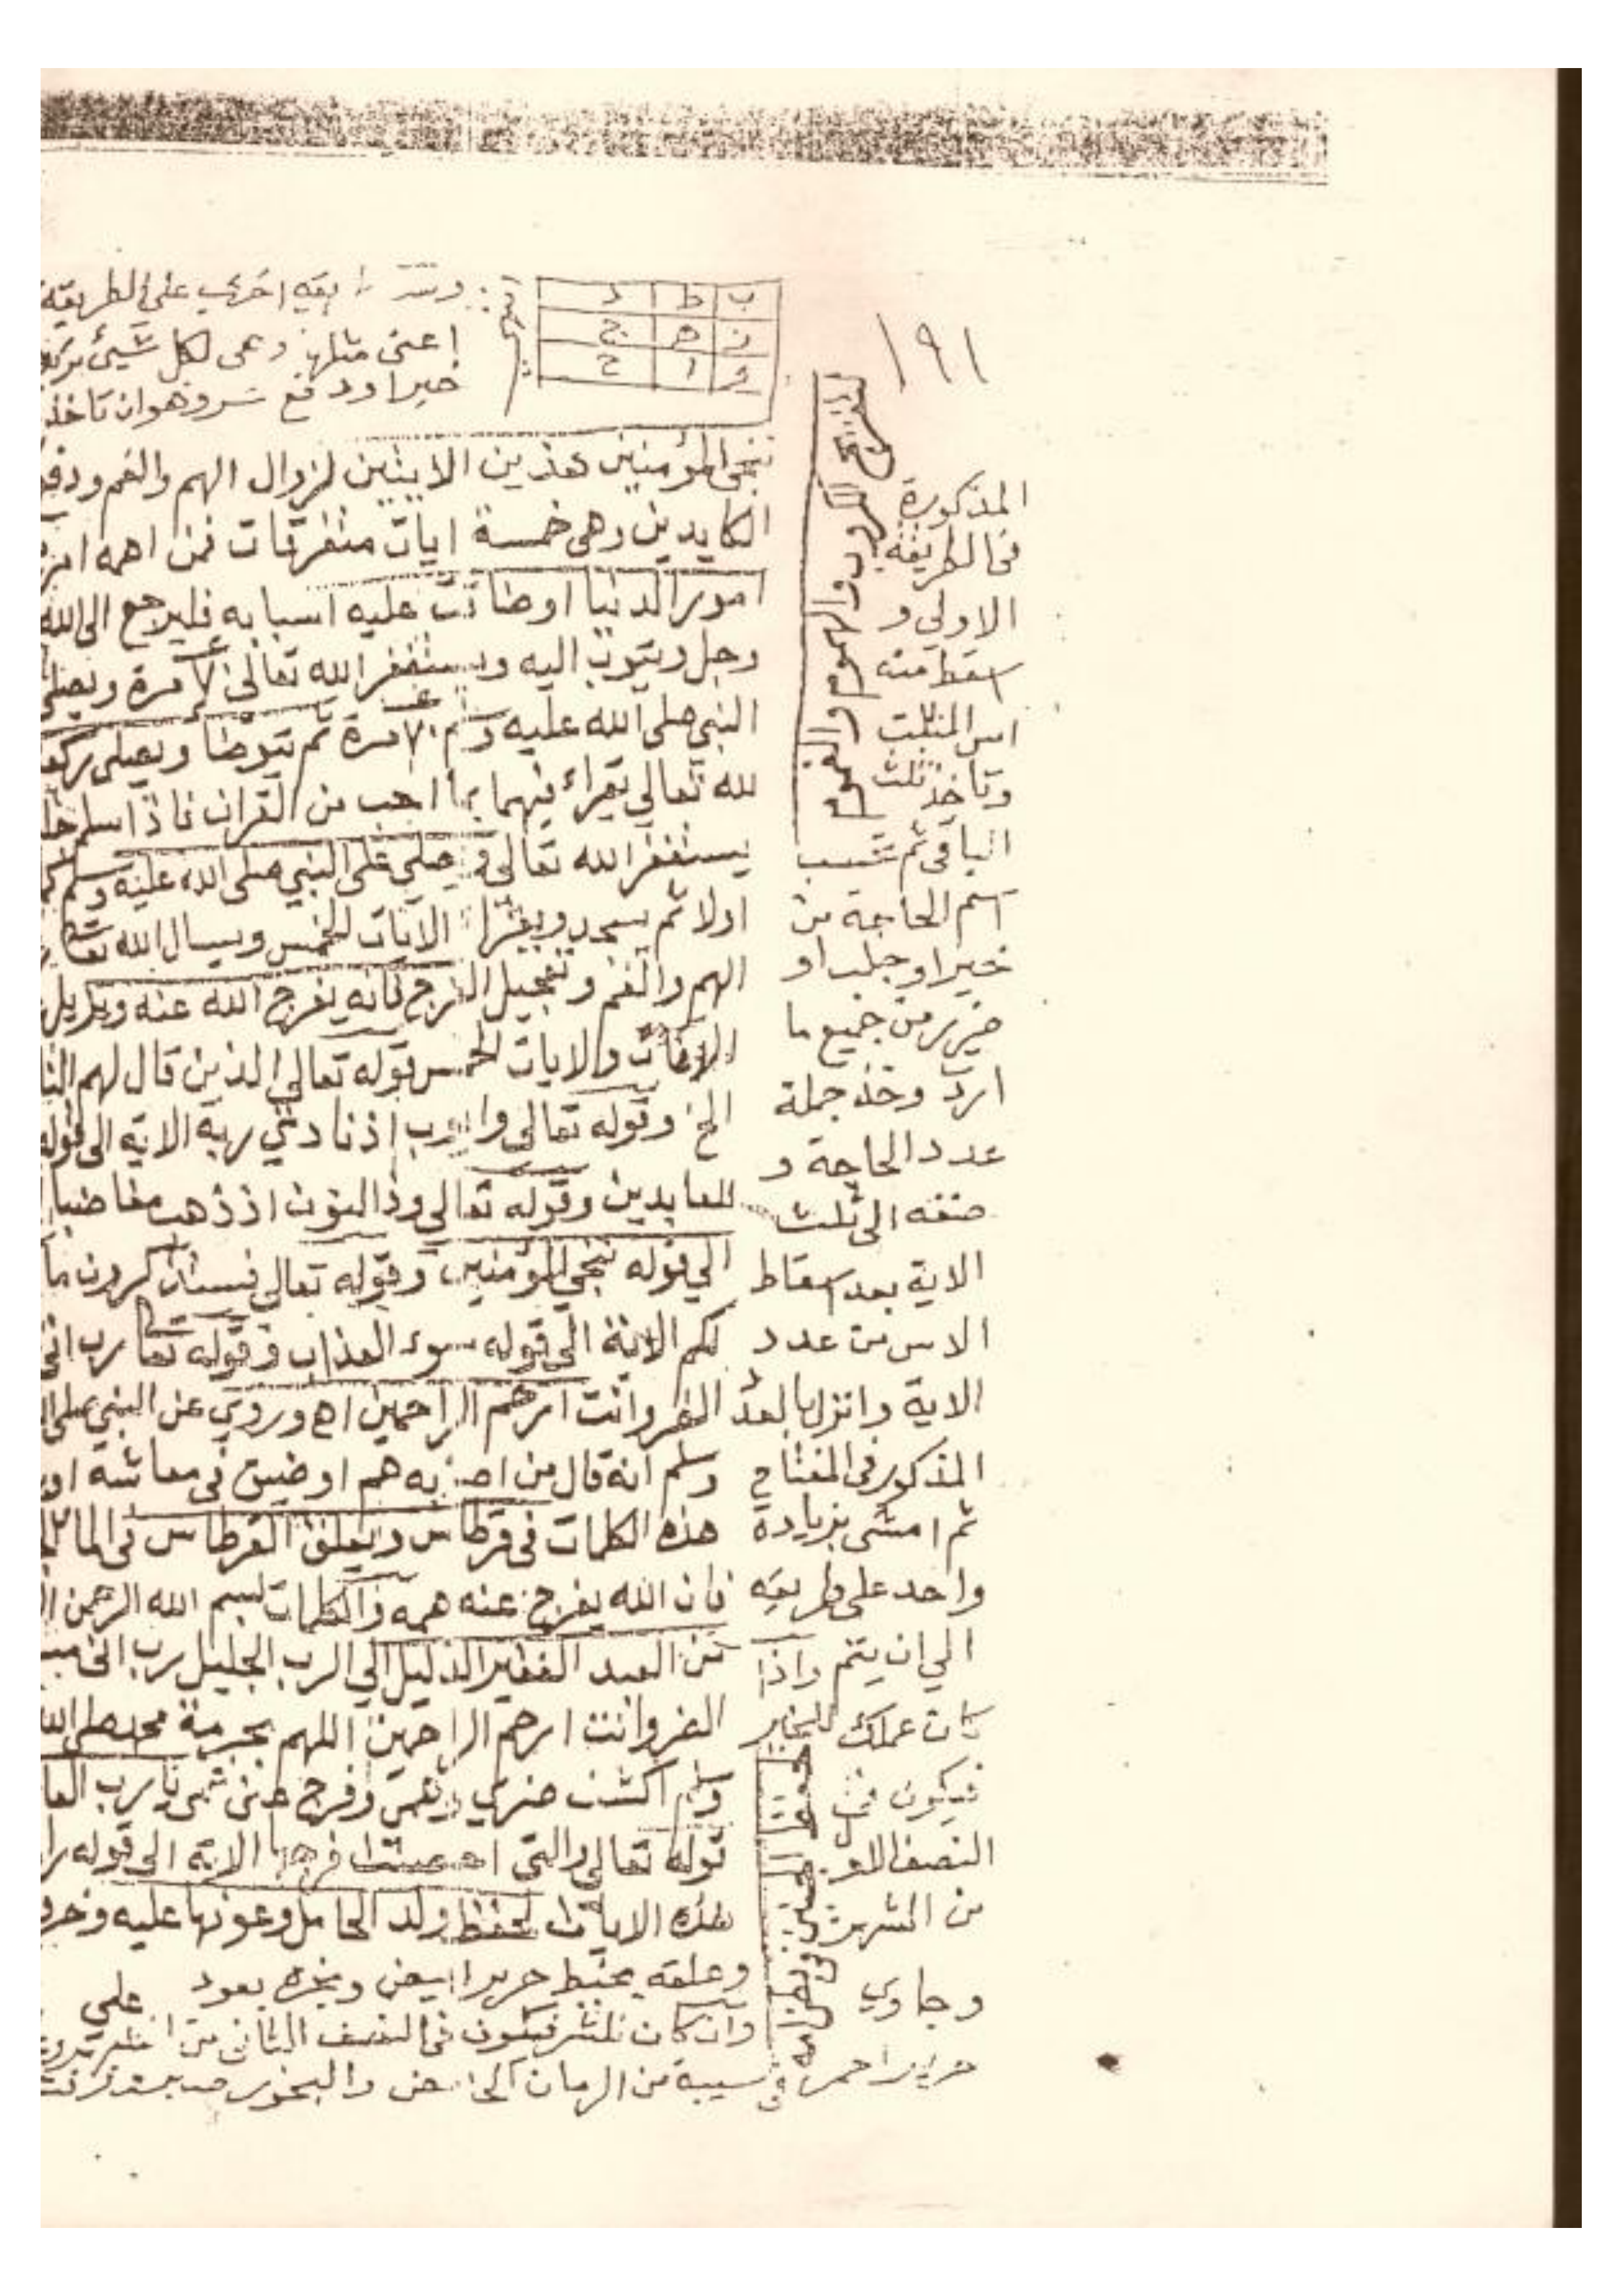 ١٩١
ب ط د
ز ه ج
و ا ح
اخرى على الطريقة
اعنى مثلها وهى لكل شيئ تركته
خيرا ودفع شر وهو ان تاخذ
ننجى المؤمنين هذين الايتين لزوال الهم والغم ودفع
الكايدين وهى خمسة ايات متفرقات فمن اهمه امر
امور الدنيا او ضاقت عليه اسبابه فليرجع الى الله
وجل ويتوب اليه ويستغفر الله تعالى ٧٠ مرة ويصلى
النبى صلى الله عليه وسلم ٧٠ مرة ثم يتوضا ويصلى ركعتين
لله تعالى يقراء فيهما بما احب من القران فاذا سلم
يستغفر الله تعالى ويصلى على النبى صلى الله عليه وسلم
اولا ثم يسجد ويقرا الايات الخمس ويسال الله تعالى
الهم والغم وتعجيل الفرج فانه يفرج الله عنه
والايات الخمس قوله تعالى الذين قال لهم
الخ وقوله تعالى وايوب اذ نادى ربه الاية الى قوله
للعابدين وقوله تعالى وذا النون اذ ذهب مغاضبا
الى قوله ننجى المؤمنين وقوله تعالى فستذكرون ما
لكم الاية الى قوله سوء العذاب وقوله تعا رب انى
الضر وانت ارحم الراحمين اه وروى عن النبى صلى
وسلم انه قال من اصابه هم او ضيق فى معاشه او
هذه الكلمات فى قرطاس ويعلق القرطاس فى الما
فان الله يفرج عنه همه والكلمات بسم الله الرحمن
من العبد الفقير الذليل الى الرب الجليل رب انى
الضر وانت ارحم الراحمين اللهم بحرمة محمد صلى الله
وسلم اكشف ضرى وهمى وفرج عنى غمى يا رب
قوله تعالى والتى احصنت فرجها الاية الى قوله
هذه الايات لحفظ ولد الحامل وعونها عليه
وعلقه بخيط حرير ابيض وبخره بعود
وان كان للشر فيكون فى النصف الثانى من
من الرمان الحامض والبخور
المذكورة
فى الطريقة
الاولى و
اسقط منه
اس المثلث
وتاخذ ثلث
الباقى ثم تحسب
اسم الحاجة من
خير او جلب او
ضرر من جميع ما
ارد وخذ جملة
عدد الحاجة و
ضفه الى ثلث
الاية بعد اسقاط
الاس من عدد
الاية وانزل بالعدد
المذكور فى المفتاح
ثم امشى بزيادة
واحد على طريقه
الى ان يتم واذا
كان عملك للخير
فيكون فى
النصف الاول
من الشهر
وجاوى على
حرير احمر
الكروب والهموم والغموم